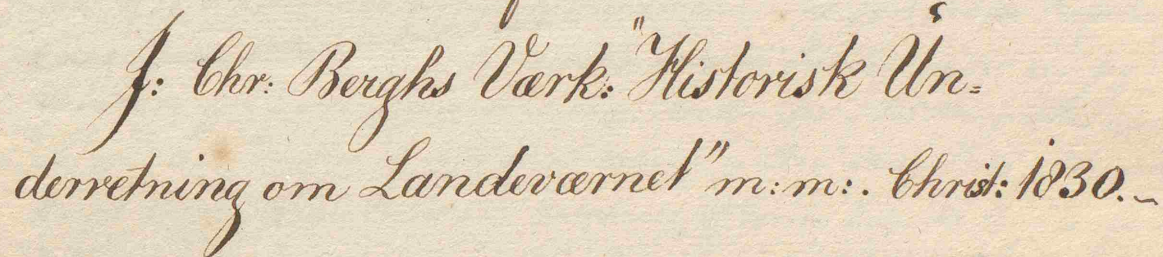 J: Chr: Berghs Værk: "Historisk Un=
derretning om Landeværnet" m: m: . Christ: 1830. ~